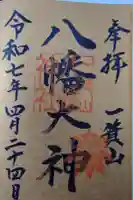 奉拝
一箕山
八幡大神
令和七年四月二十四日